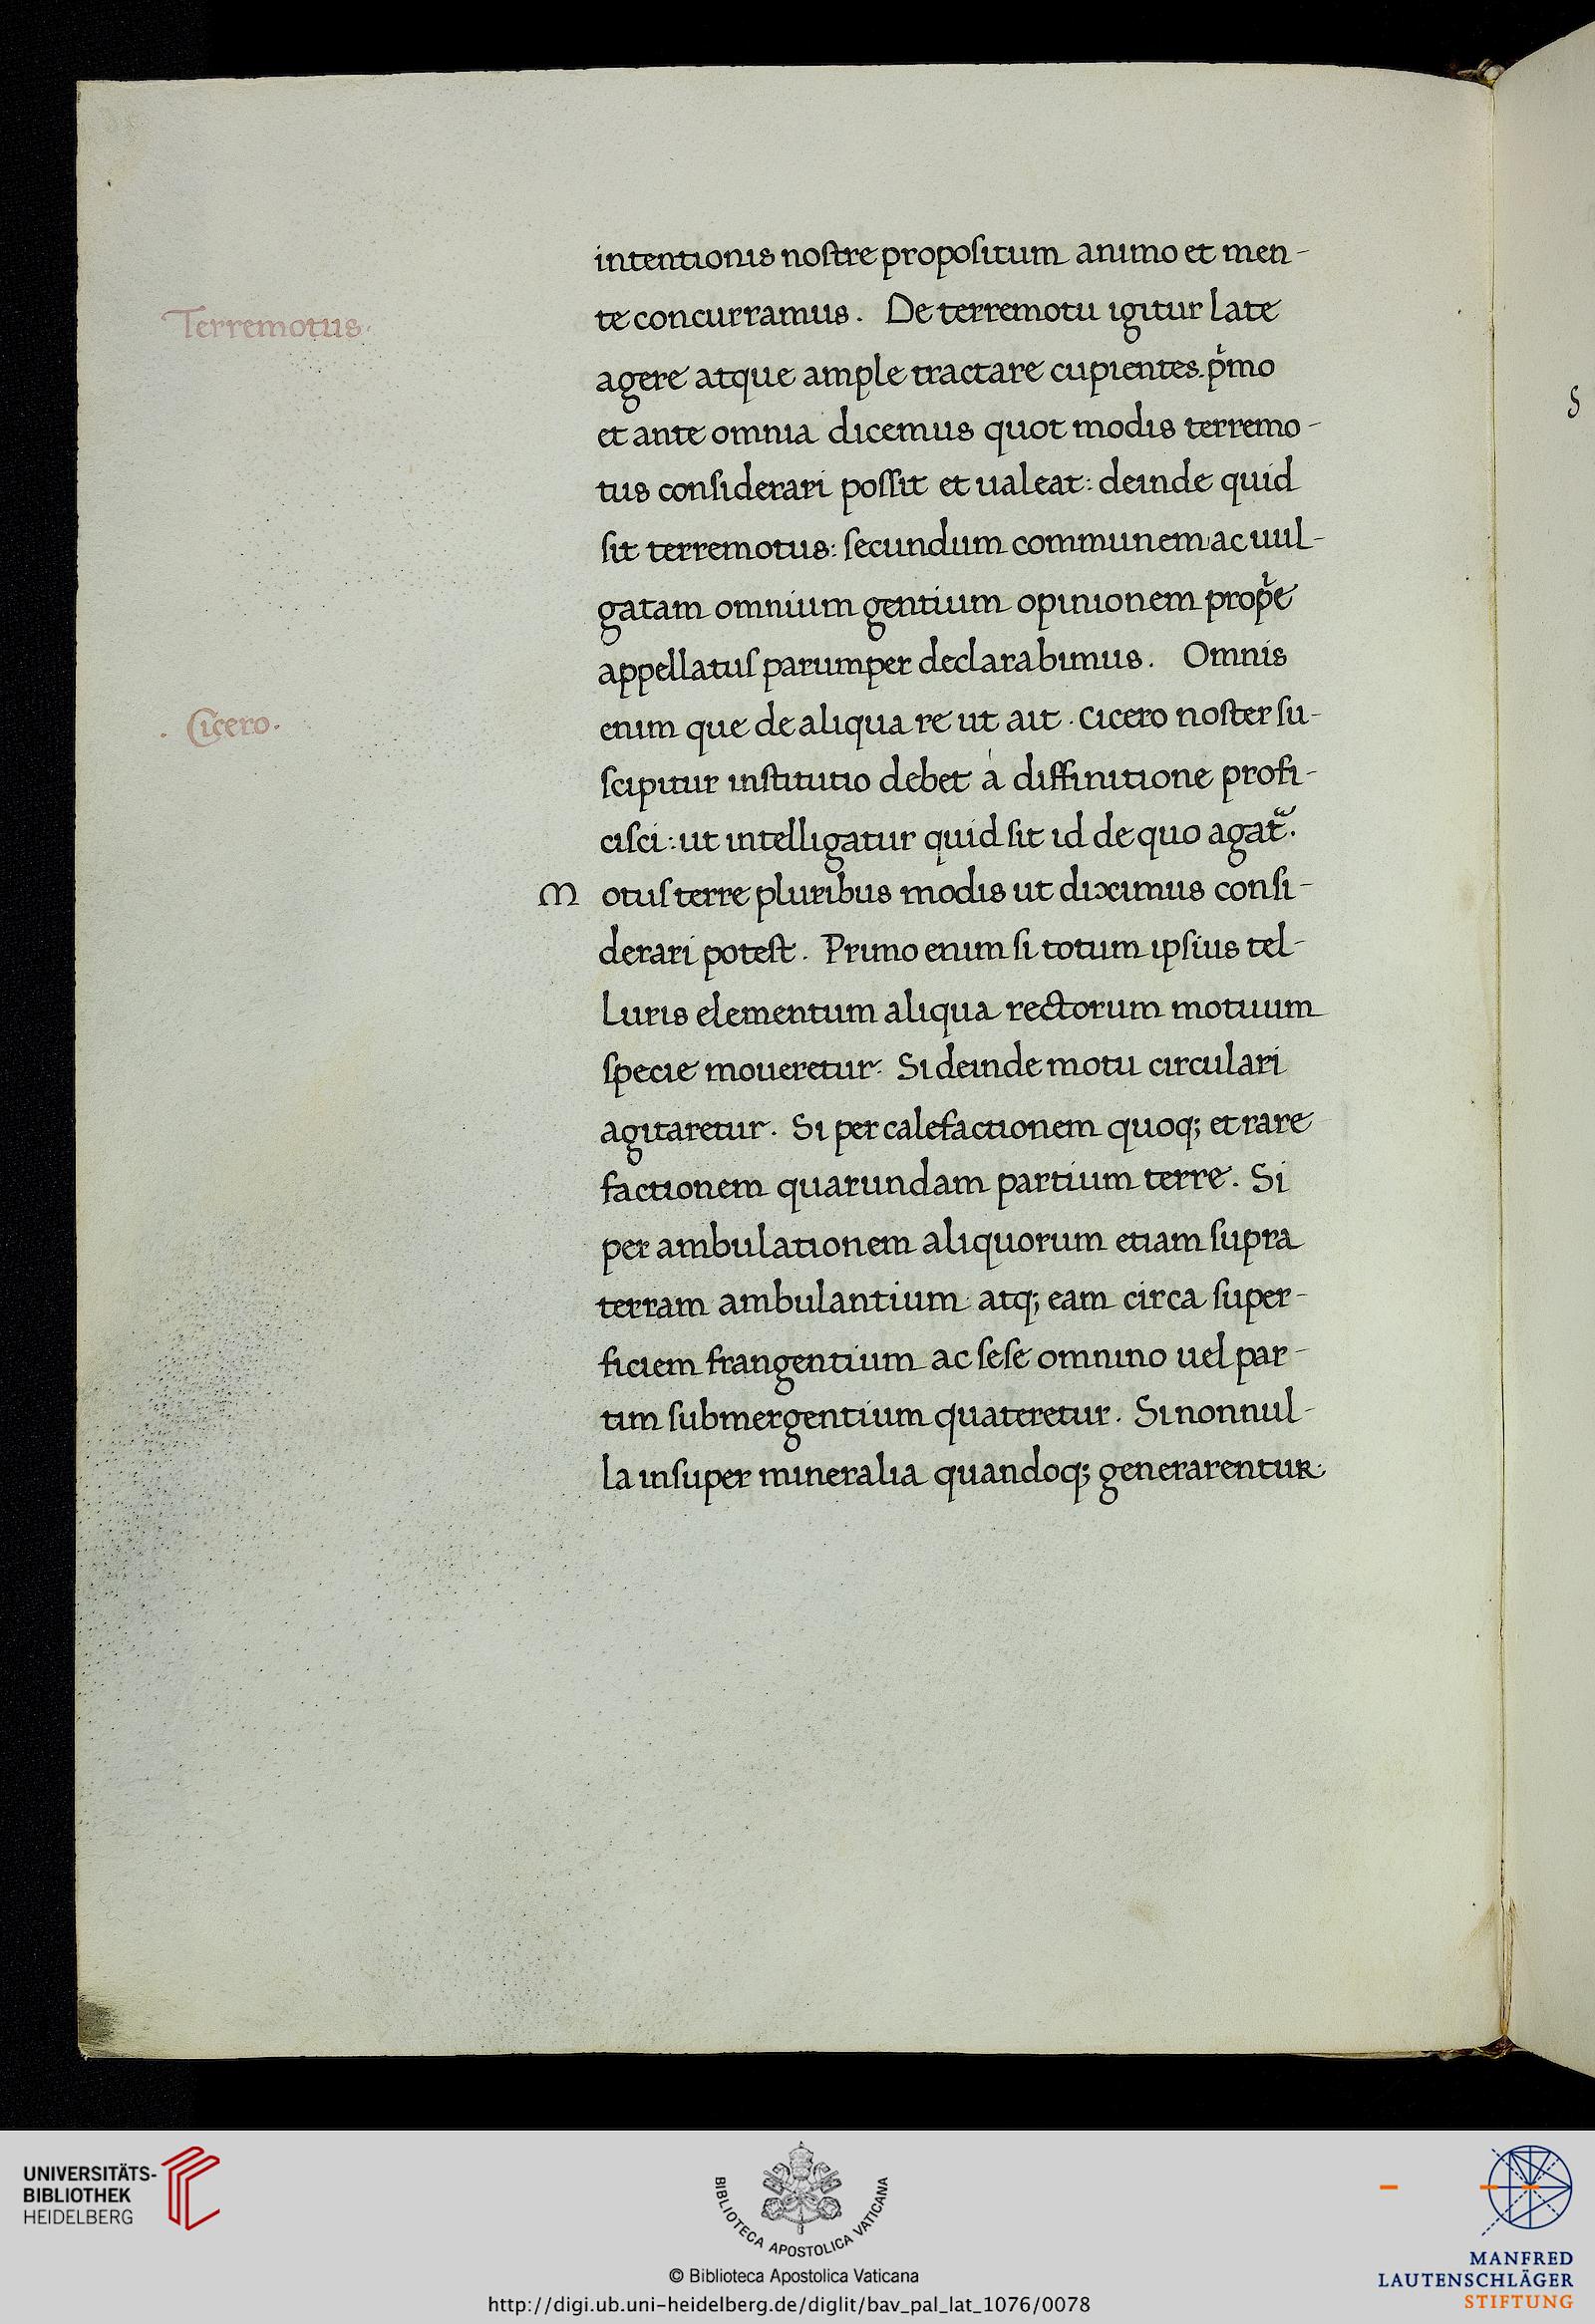 intentionis nostre propositum animo et men-
Terremotus.
te concurramus. De terremotu igitur late
agere atque ample tractare cupientes. pͥmo
et ante omnia dicemus quot modis terremo-
tus considerari possit et ualeat: deinde quid
sit terremotus: secundum communem ac uul-
gatam omnium gentium opinionem propͥe
appellatus parumper declarabimus. Omnis
. Cicero.
enim que de aliqua re ut ait. Cicero noster su-
scipitur institutio debet á diffinitione profi-
cisci: ut intelligatur quid sit id de quo agat᷑.
M otus terre pluribus modis ut diximus consi-
derari potest. Primo enim si totum ipsius tel-
luris elementum aliqua rectorum motuum
specie moueretur. Si deinde motu circulari
agitaretur. Si per calefactionem quoq; et rare
factionem quarundam partium terre. Si
per ambulationem aliquorum etiam supra
terram ambulantium atq; eam circa super-
ficiem frangentium ac sese omnino uel par-
tim submergentium quateretur. Si nonnul-
la insuper mineralia quandoq; generarentur.
S
UNIVERSITÄTS-
BIBLIOTHEK
HEIDELBERG
BIBLIOTECA APOSTOLICA VATICANA
© Biblioteca Apostolica Vaticana
http://digi.ub.uni-heidelberg.de/diglit/bav_pal_lat_1076/0078
MANFRED
LAUTENSCHLÄGER
STIFTUNG